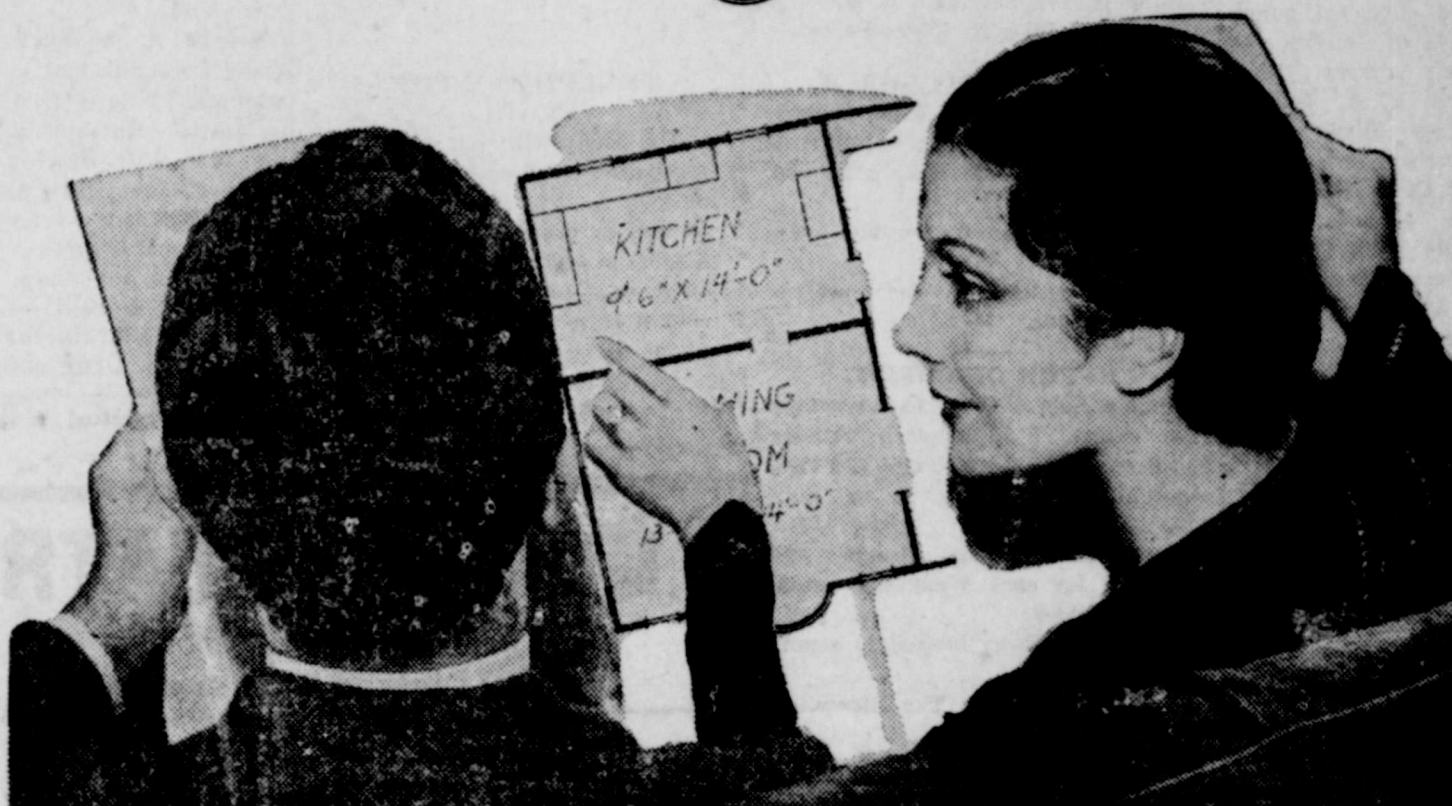 KITCHEN
9' 6" X 14'-0"
NING
OM
13 4'-0"